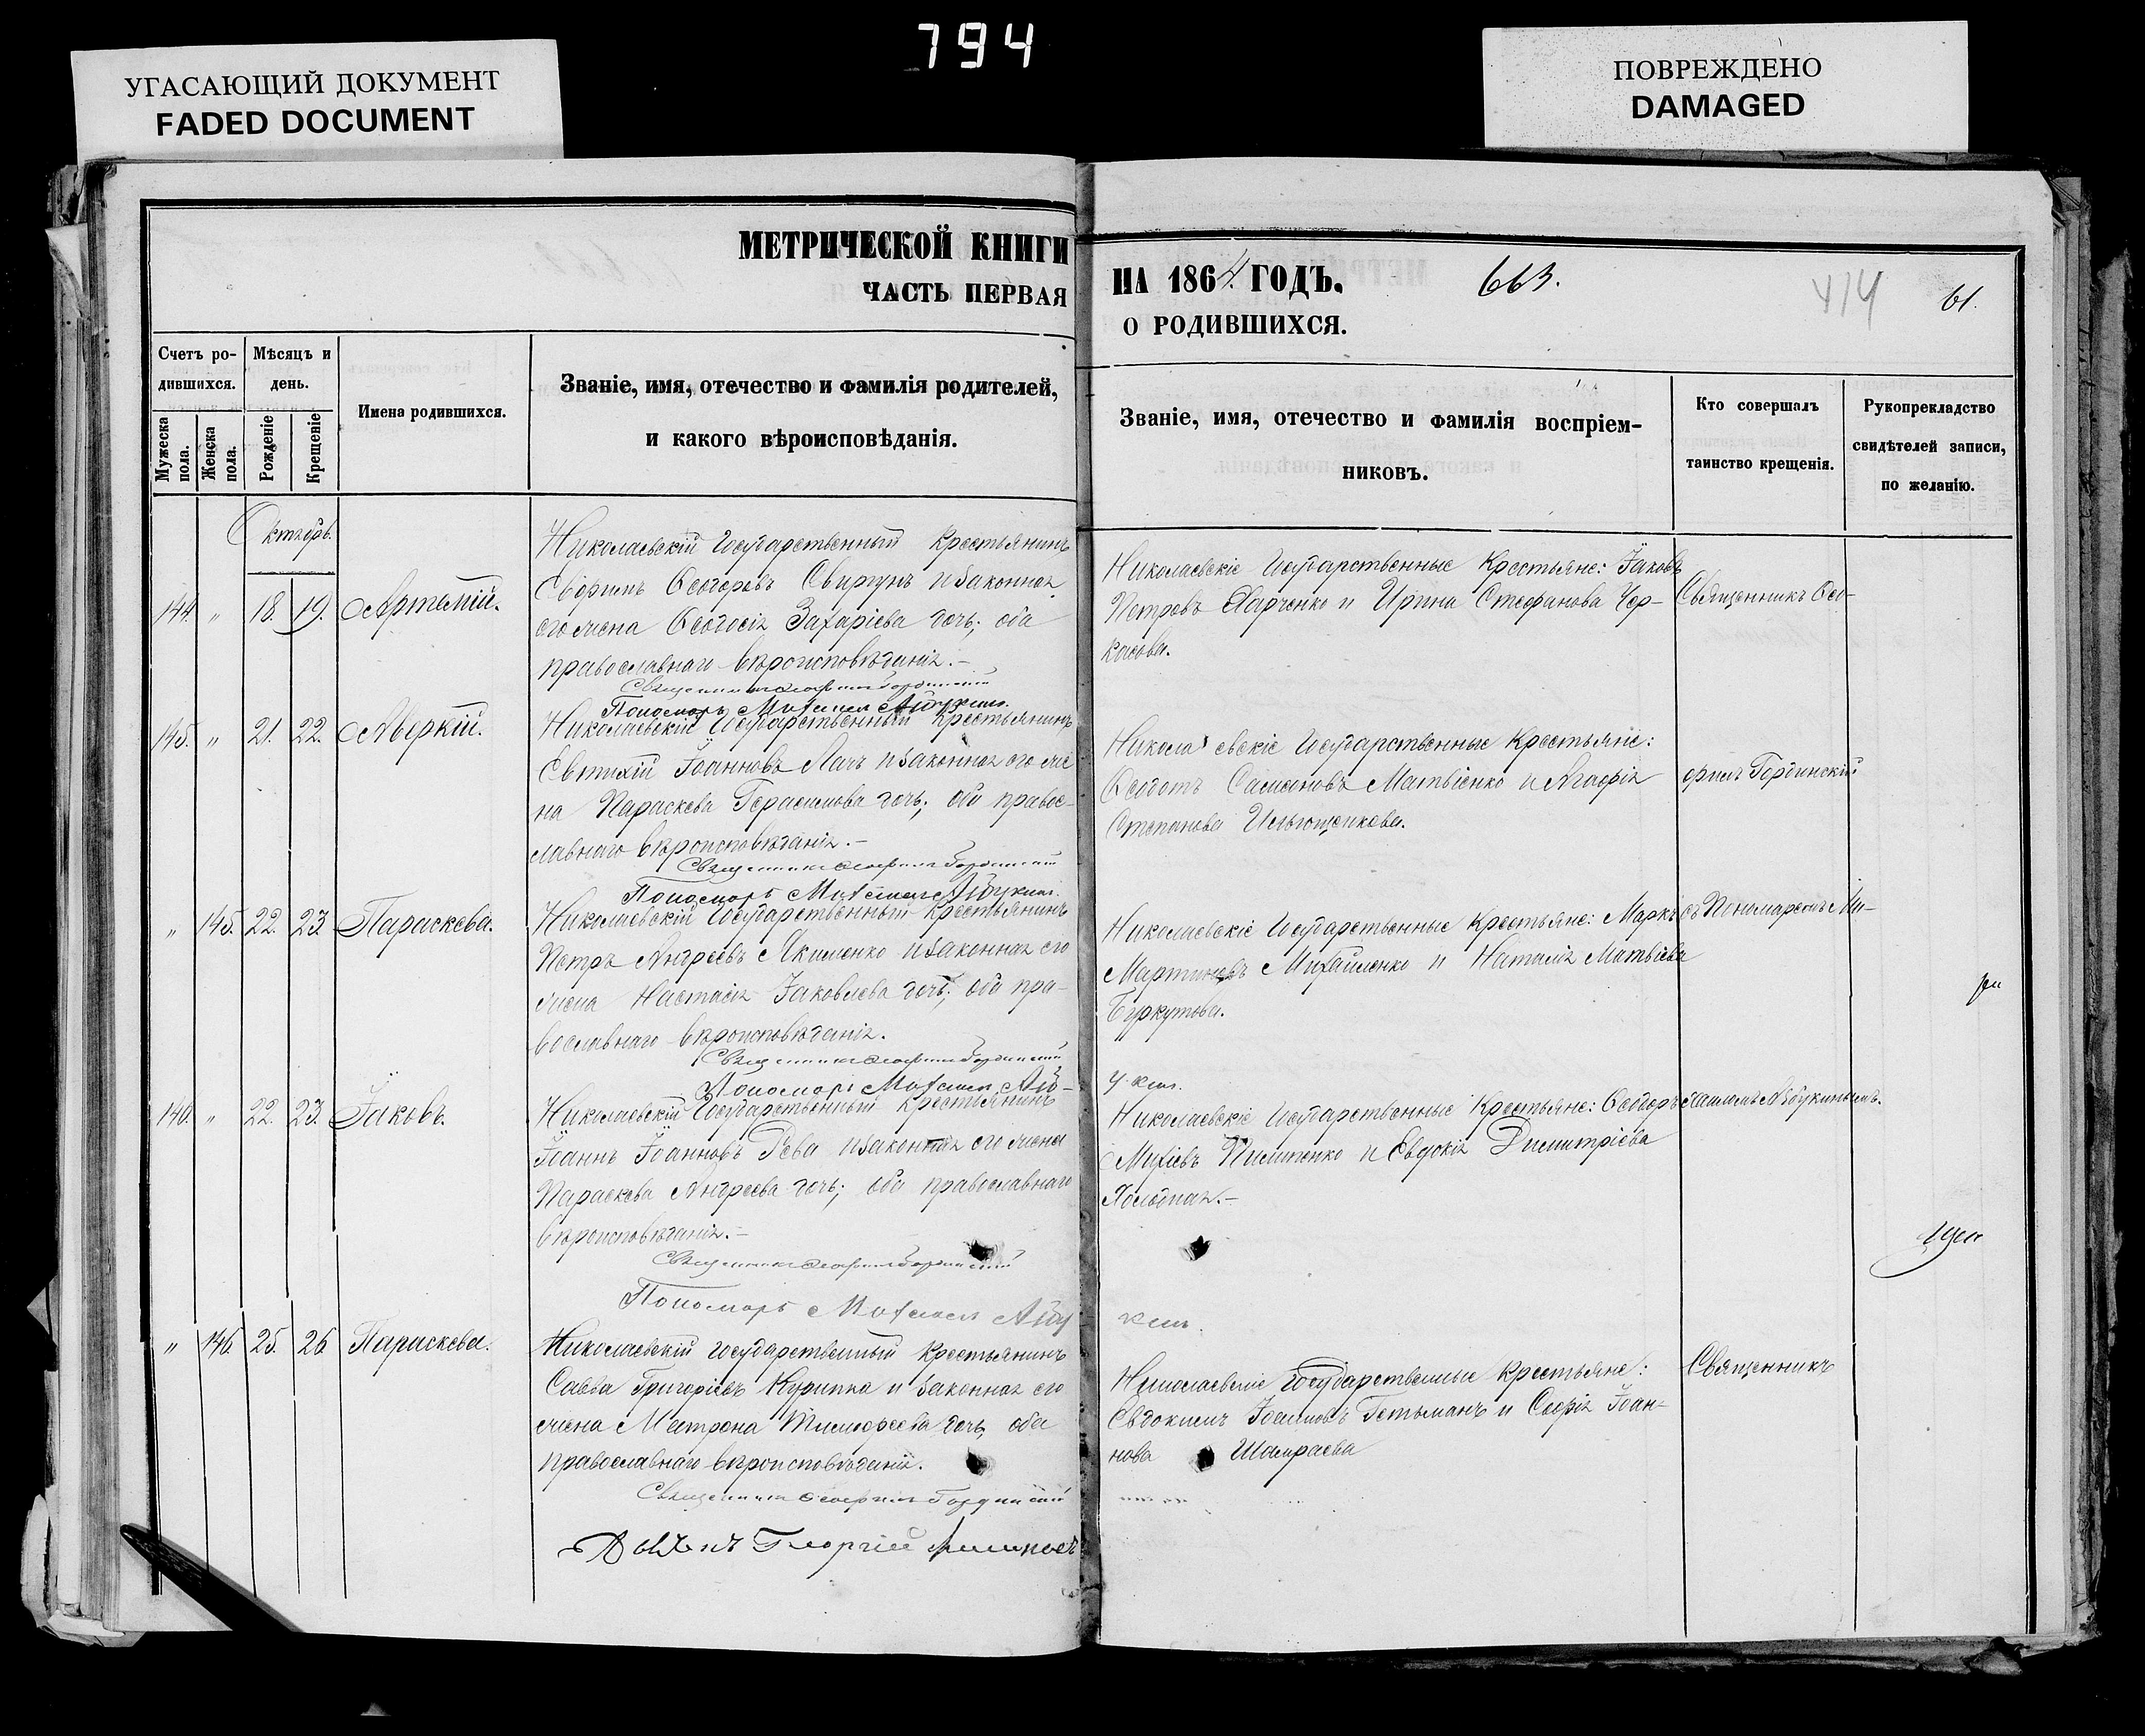 794
УГАСАЮЩИЙ ДОКУМЕНТ
FADED DOCUMENT
ПОВРЕЖДЕНО
DAMAGED
МЕТРИЧЕСКОЙ КНИГИ
ЧАСТЬ ПЕРВАЯ
НА 1864. ГОДЪ.
663.
414
61.
О РОДИВШИХСЯ.
Счетъ ро-
дившихся.
Мужеска пола.
Женска пола.
Мѣсяцъ и
день.
Рожденіе
Крещеніе
Имена родившихся.
Званіе, имя, отечество и фамилія родителей,
и какого вѣроисповѣданія.
Званіе, имя, отечество и фамилія воспріем-
никовъ.
Кто совершалъ
таинство крещенія.
Рукоприкладство
свидѣтелей записи,
по желанію.
Октябрь.
144. " 18. 19. Артемій.
Николаевскій Государственный Крестьянинъ
Ефримъ Ѳеодоровъ Свиргунъ и законная
его жена Ѳеодосія Захаріева дочь; оба
православнаго вѣроисповѣданія.-
Пономарь
Николаевскіе Государственные Крестьяне: Іаковъ
Петровъ Харченко и Ирина Стефанова Чер-
касова.
Священникъ Ѳео-
145. " 21. 22. Аверкій.
Николаевскій Государственный Крестьянинъ
Евтихій Іоанновъ Лачъ и законная его же
на Параскева Герасимова дочь; оба правос-
лавнаго вѣроисповѣданія.-
Пономарь
Николаевскіе Государственные Крестьяне:
Ѳеодотъ Самсоновъ Матвіенко и Агафія
Степанова
филъ Гординскій
" 145. 22. 23. Параскева.
Николаевскій Государственный Крестьянинъ
Петръ Андреевъ Якименко и законная его
жена Настасія Іаковлева дочь; оба пра-
вославнаго вѣроисповѣданія.
Пономарь
Николаевскіе Государственные Крестьяне: Маркъ
Мартиновъ Михайленко и Наталія Матвіева
Буркутова.
съ Пономаремъ Ми-
146. " 22. 23. Іаковъ.
Николаевскій Государственный Крестьянинъ
Іоаннъ Іоанновъ Рева и законная его жена
Параскева Андреева дочь; оба православнаго
вѣроисповѣданія.-
Пономарь
Николаевскіе Государственные Крестьяне: Ѳеодоръ
Михіевъ Пилипенко и Евдокія Димитріева
хаиломъ Абдукинымъ.
" 146. 25. 26. Параскева.
Николаевскій государственный крестьянинъ
Савва Григоріевъ Курипка и законная его
жена Матрона Тимофеева дочь, оба
православнаго вѣроисповѣданія.
Священникъ Ѳеофилъ Гординскій
Николаевскіе государственные крестьяне:
Евдокимъ Іоанновъ Гетьманъ и Софія Іоан-
нова Шамраева
Священникъ